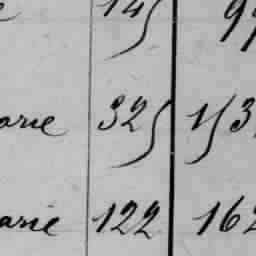 145
arie 325 153
arie 122 162